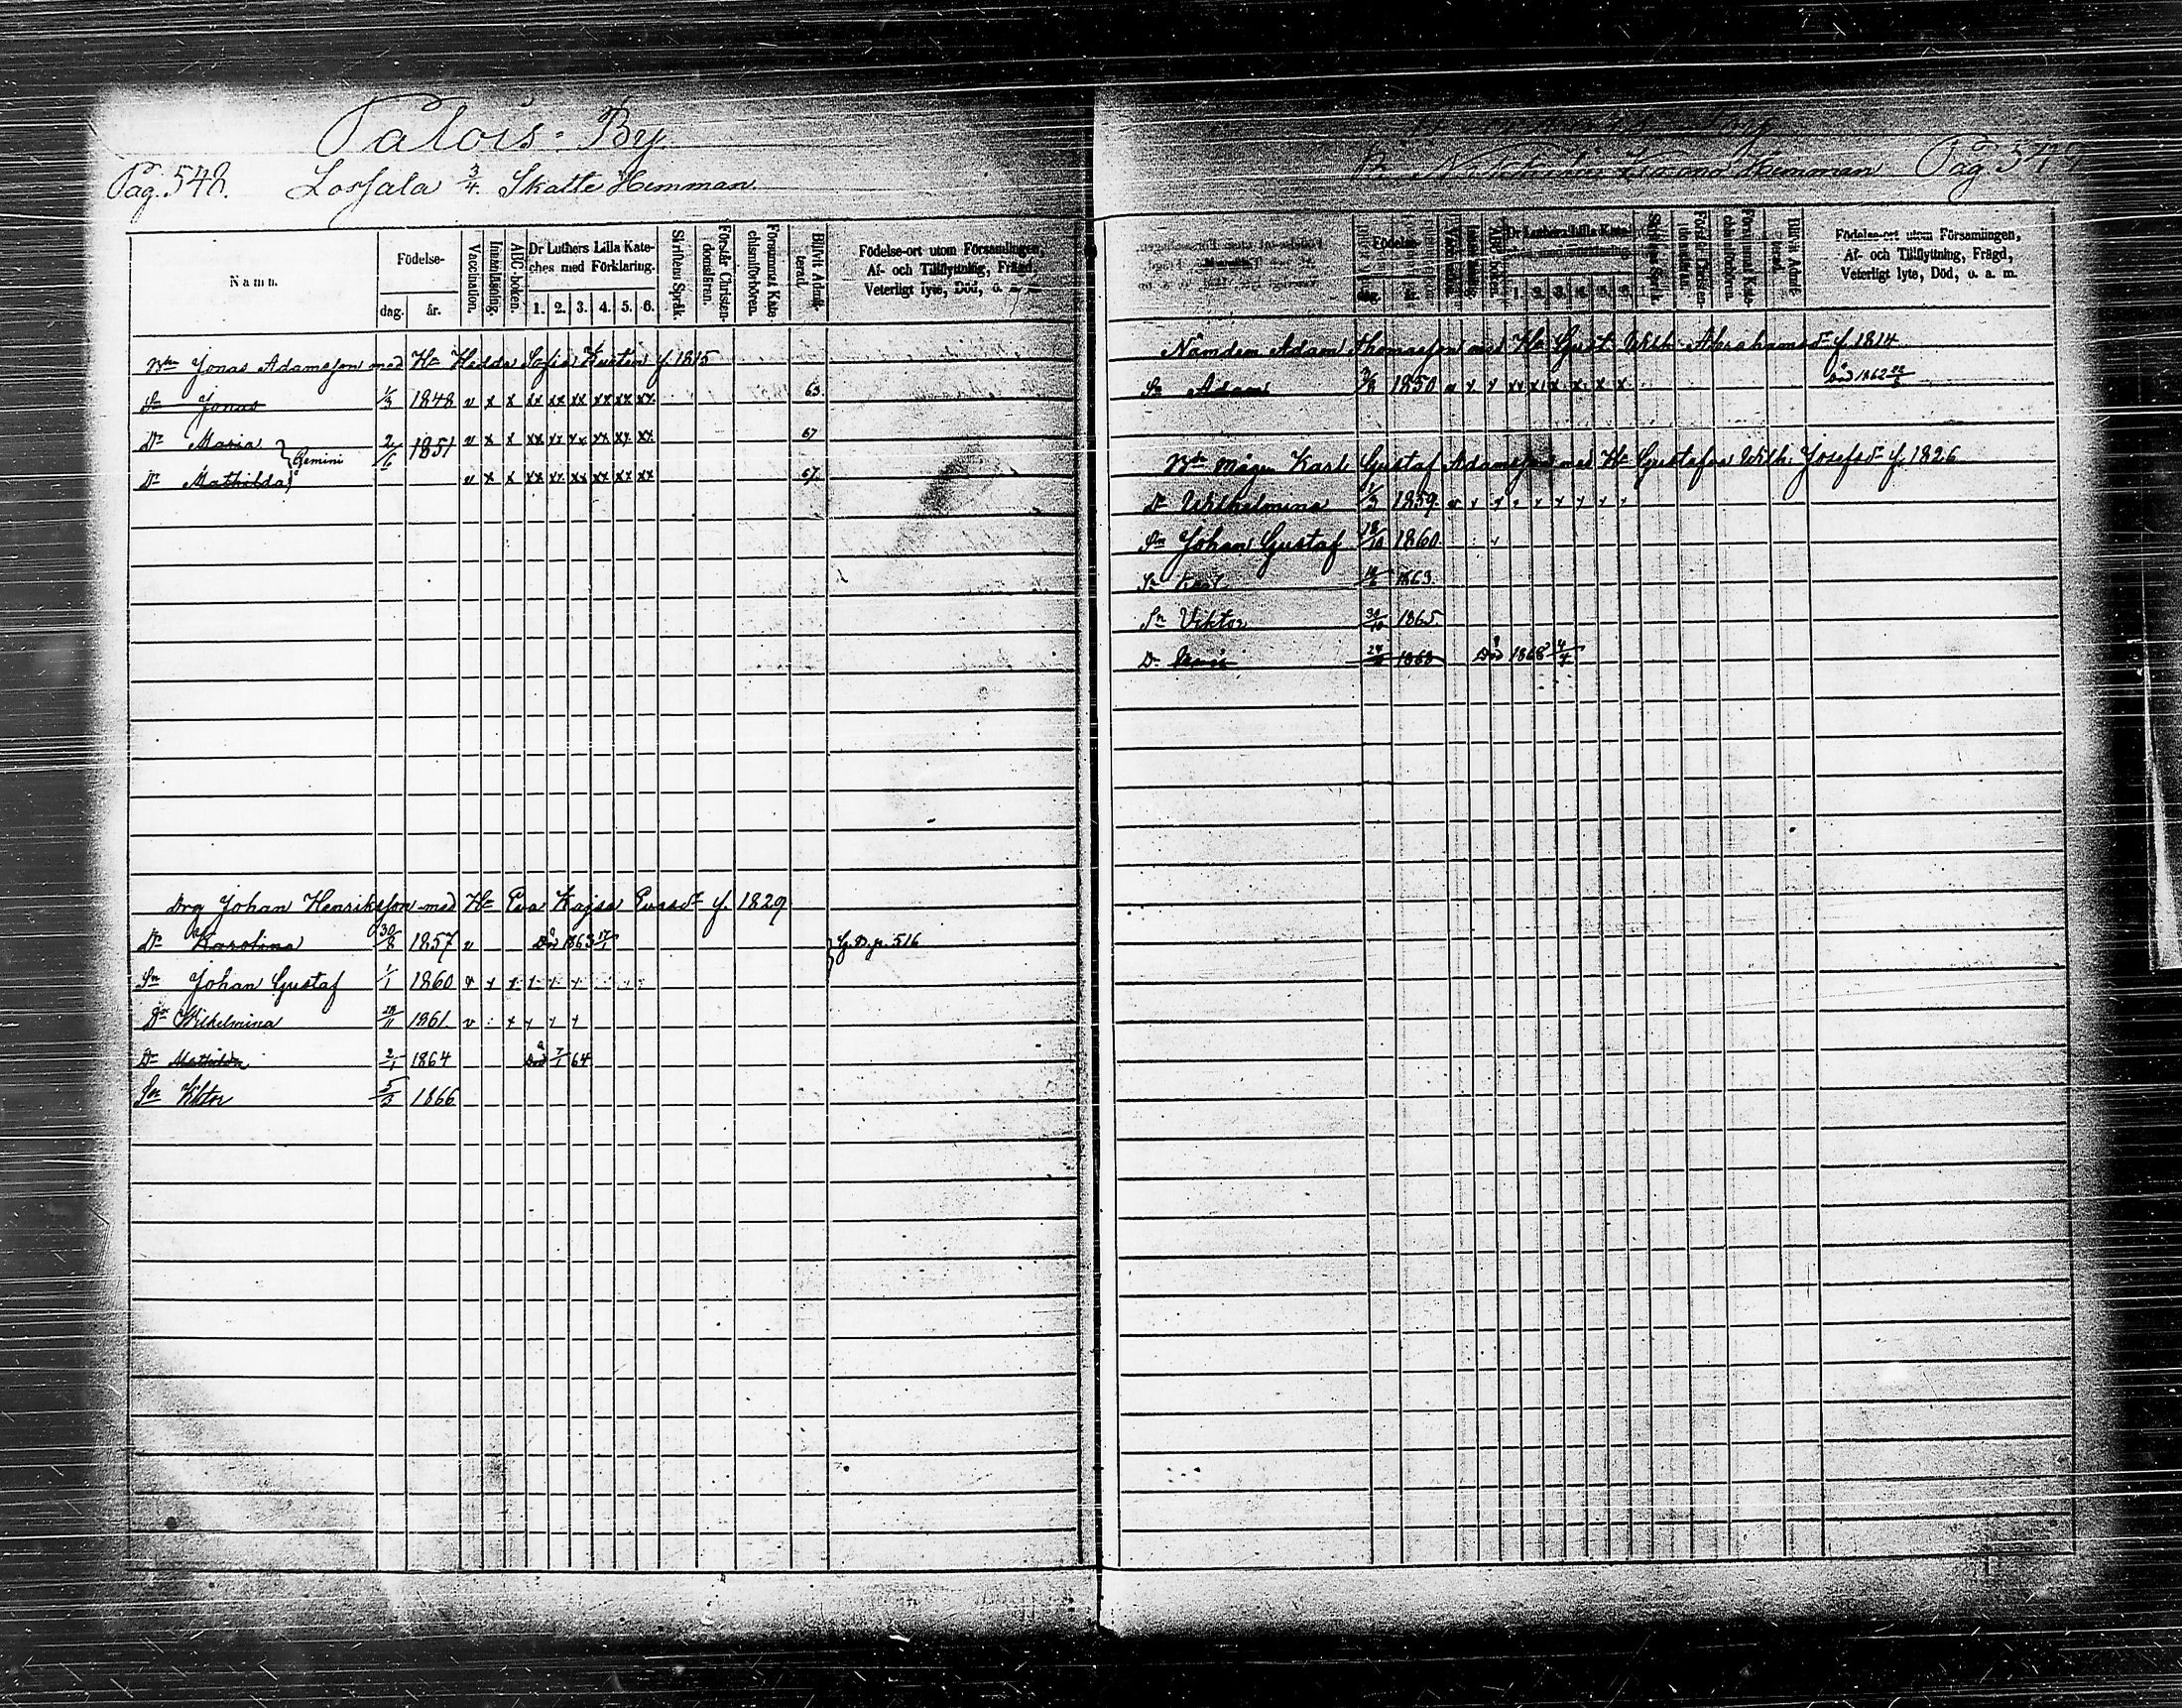 Palois: By.
Pag. 548. Lossala 3/4 Skatte Hemman.
Namn.
Födelse-
dag. år.
Vaccination.
Innanläsning.
ABC-boken.
Dr Luthers Lilla Kate-
ches med Förklaring.
1. 2. 3. 4. 5. 6.
Skriftens Språk.
Förstår Christen-
domsläran.
Försummat Kate-
chismiförhören.
Blifvit Admit-
terad.
Födelse-ort utom Församlingen,
Af- och Tillflyttning, Frägd,
Veterligt lyte, Död, o. a. m.
Bn Jonas Adamsson med Hu Hedda Sofia f. 1815
Sn Jonas 1/3 1848 v x x xx xx xx xx xx xx 63
Dr Maria 2/6 1851 v x x xx xx xx xx xx xx 67
Gemini
Dr Mathilda v x x xx xx xx xx xx xx 67.
Drg Johan Henriksson med Hu Eva Kajsa f. 1829
Dr Karolina 30/8 1857 v Död 1863 17/1 p. 516
Sn Johan Gustaf 1/1 1860 v x x x x x
Dr Wilhelmina 28/11 1861 v x x x x
Dr Mathilda 2/1 1864 Död 7/1 64
Sn Viktor 5/3 1866
Hemman Pag 549
Födelse-
dag. år.
ABC-boken.
Dr Luthers Lilla Kate-
1. 2. 3. 4. 5. 6.
Skriftens Språk.
Förstår Christen-
domsläran.
Försummat Kate-
chismiförhören.
Blifvit Admit-
terad.
Födelse-ort utom Församlingen,
Af- och Tillflyttning, Frägd,
Veterligt lyte, Död, o. a. m.
Nämdem Adam Thomasson med Hu Gust. Wilh. Abrahamsdr f. 1814
Sn Adam 1850 Död 1862
Bn Mågen Karl Gustaf Adamsson med Hu Gustafva Wilh. Josefsdr f. 1826
Dr Wilhelmina 1/3 1859
Sn Johan Gustaf 18/10 1860
Sn Karl 1863
Sn Viktor 31/10 1865
Dr 1868 Död 1868 4/4